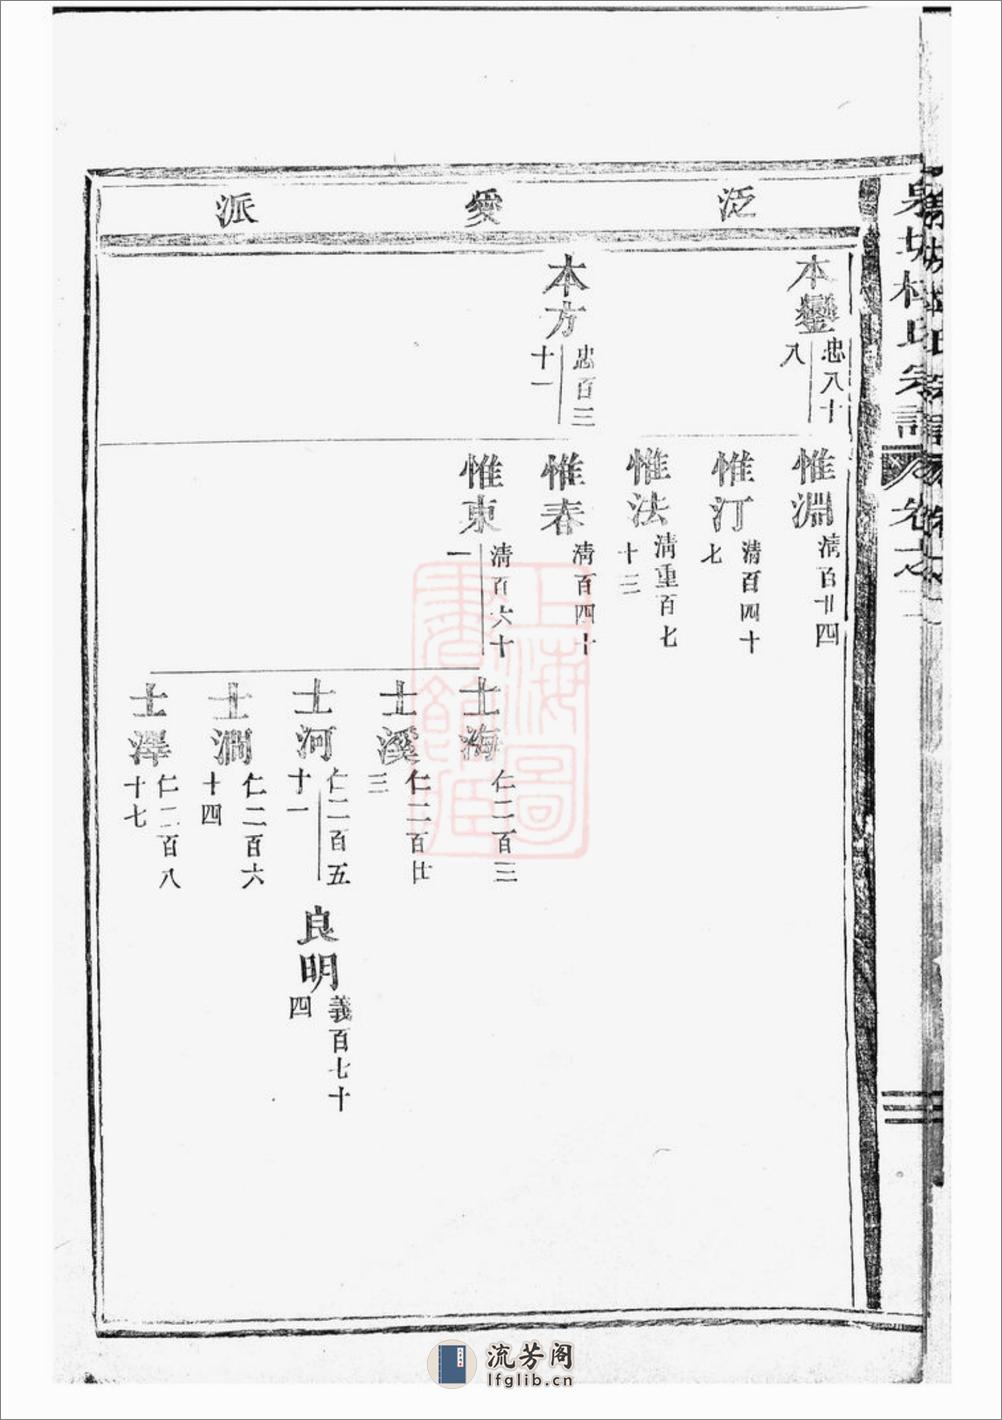 泛愛派
本鑾
忠八十
八
本方
忠百三
十一
惟淵
清百廿四
惟汀
清百四十
七
惟法
清重百七
十三
惟春
清百四十
惟東
清百六十
一
士海
仁二百三
士溪
仁二百廿
三
士河
仁二百五
十一
士澗
仁二百六
十四
士澤
仁二百八
十七
良明
義百七十
四
上海圖
書館藏
流芳阁
lfglib.cn